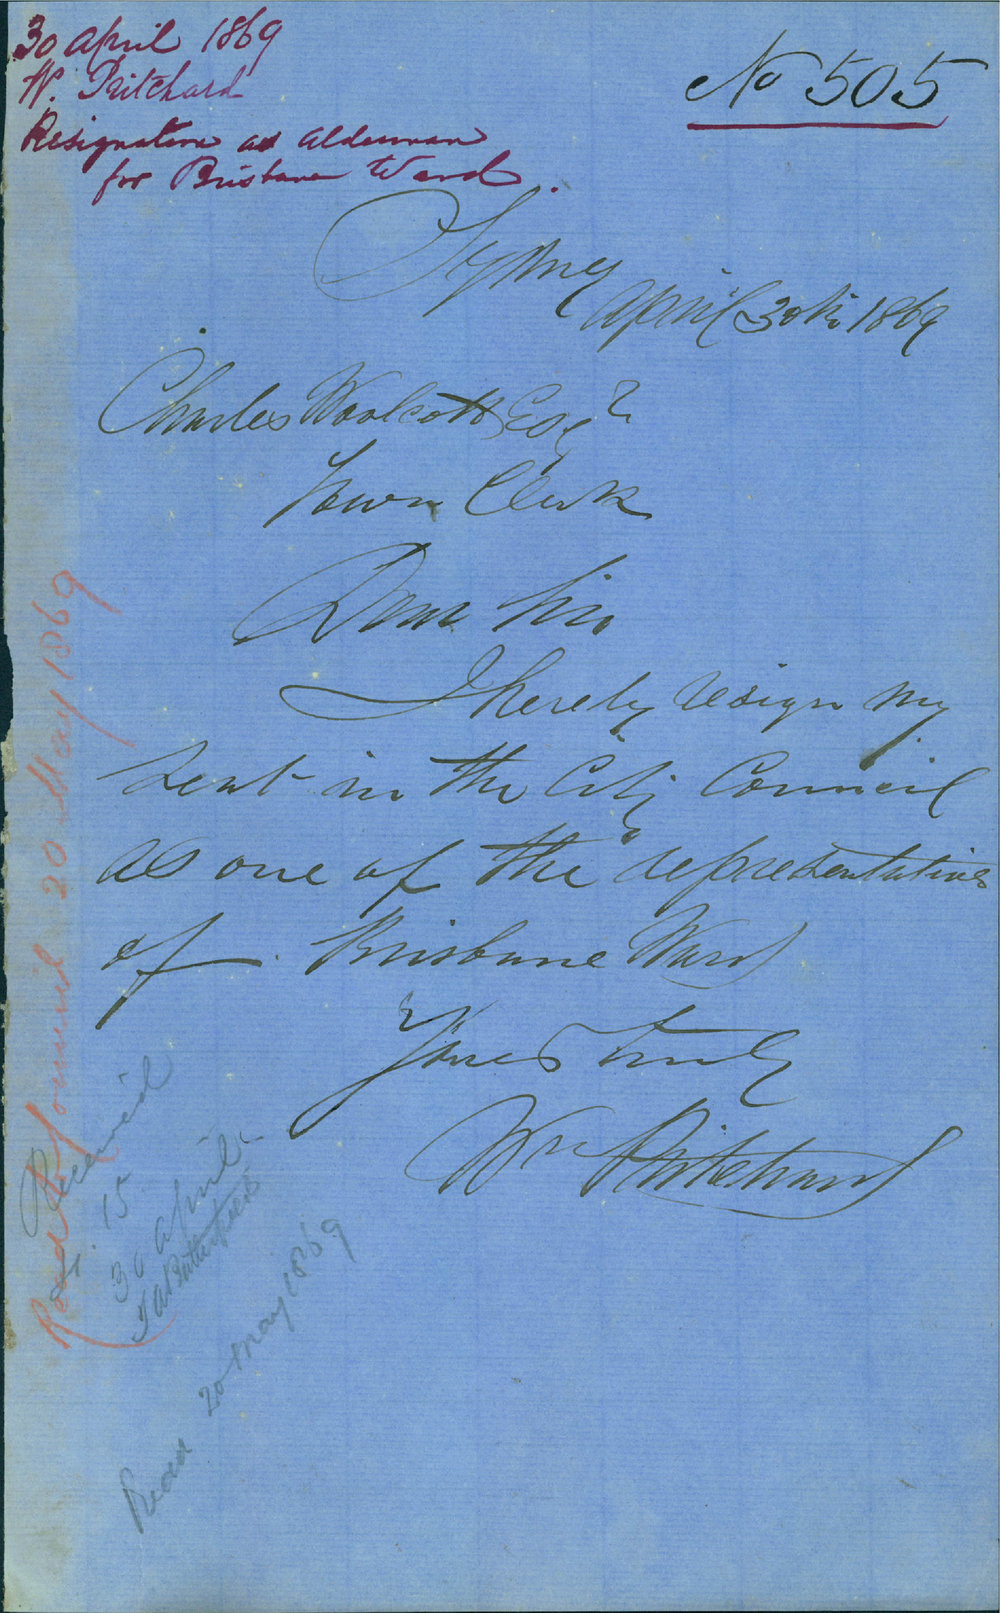 30 April 1869
W. Pritchard
Resignation as Alderman
for Brisbane Ward.
No 505
Sydney
April 30th 1869
Charles Woolcott Esqr
Town Clerk
Dear Sir
I hereby resign my
seat in the City Council
as one of the representatives
of Brisbane Ward
Yours truly
Wm Pritchard
Read Council 20 May 1869
Received
15
30 April
Read 20 May 1869